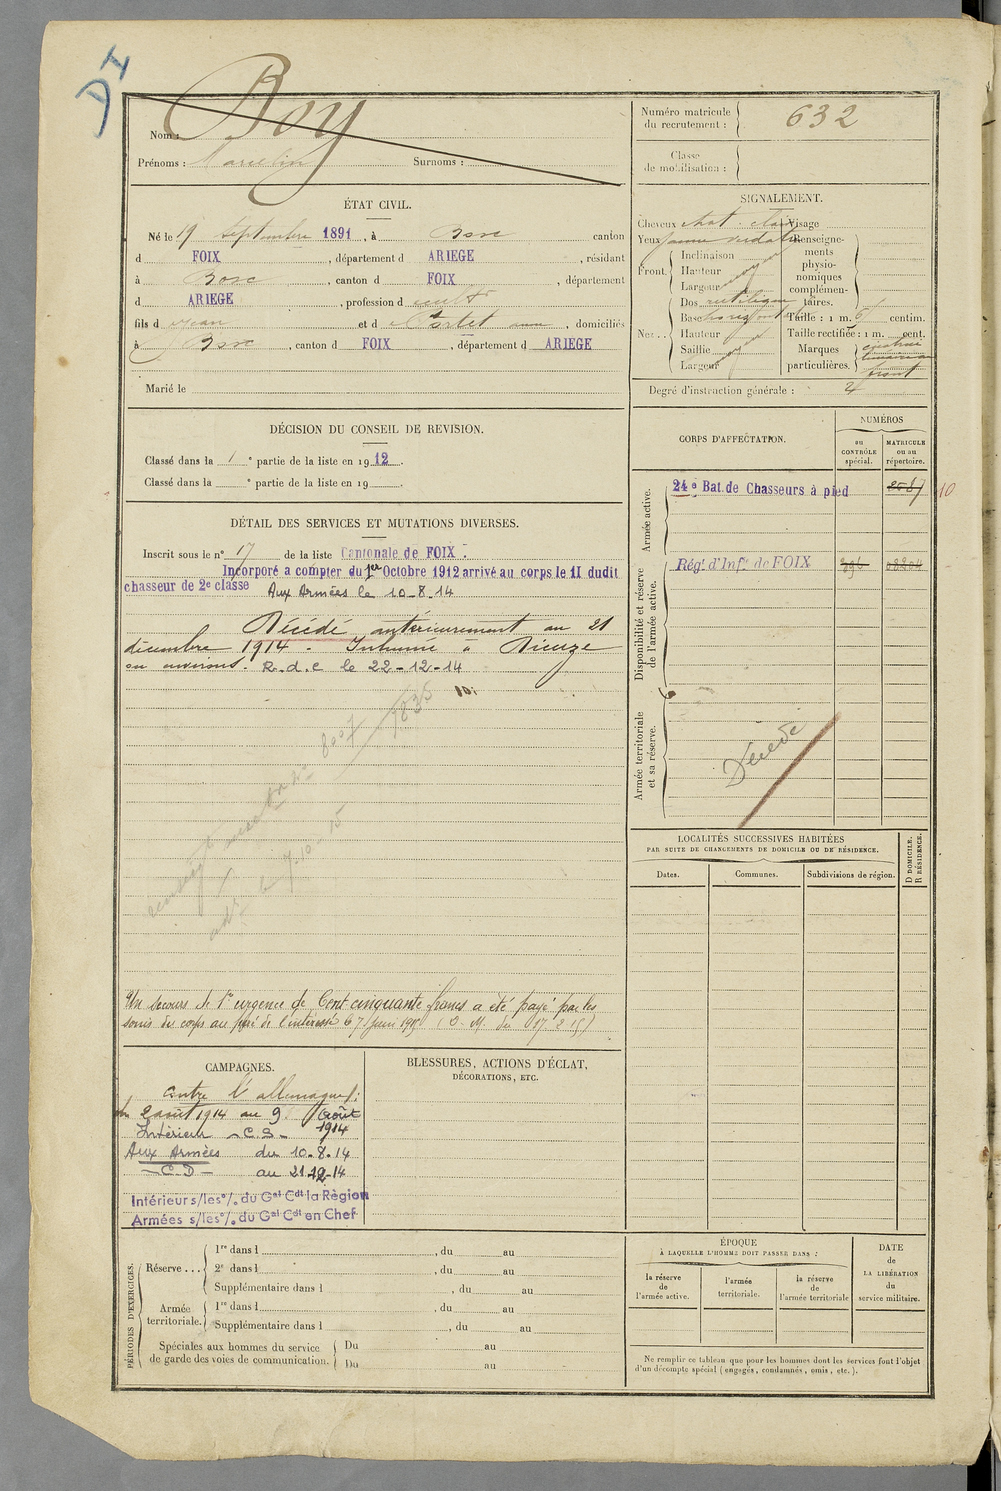 DI
Nom : Boy
Prénoms : Marcelin Surnoms :
Numéro matricule du recrutement : 632
Classe de mobilisation :
ÉTAT CIVIL.
Né le 19 septembre 1891, à Bosc canton
d FOIX, département d ARIEGE, résidant
à Bosc, canton d FOIX, département
d ARIEGE, profession d cultr
fils d Jean et d Portet anne, domiciliés
à Bosc, canton d FOIX, département d ARIEGE
Marié le
SIGNALEMENT.
Cheveux chat. clair Visage
Yeux jaune verdatre Renseignements physionomiques complémentaires.
Front. Inclinaison
Hauteur
Largeur moyen
Nez. . Dos rectiligne
Base horizontale Taille : 1 m. 6 centim.
Hauteur Taille rectifiée : 1 m. cent.
Saillie moyen Marques
Largeur particulières. front
Degré d'instruction générale : 2
DÉCISION DU CONSEIL DE REVISION.
Classé dans la 1e partie de la liste en 1912.
Classé dans la e partie de la liste en 19 .
DÉTAIL DES SERVICES ET MUTATIONS DIVERSES.
Inscrit sous le n° 17 de la liste Cantonale de FOIX.
Incorporé a compter du 1er Octobre 1912 arrivé au corps le 11 dudit
chasseur de 2e classe Aux Armées le 10-8-14
Décédé antérieurement au 21
décembre 1914. Inhumé à Dieuze
ou environs. R.d.c le 22-12-14
8007
1835
7-10-15
Un secours de 1re urgence de Cent cinquante francs a été payé par les
soins du corps au père de l'intéressé le 7 Juin 1915 (D. M. du 17 2 15)
CORPS D'AFFECTATION.
NUMÉROS
au CONTRÔLE spécial.
MATRICULE ou au répertoire.
Armée active.
24e Bat. de Chasseurs à pied 10
Disponibilité et réserve de l'armée active.
Régt. d'Infie de FOIX
Armée territoriale et sa réserve.
Décédé
LOCALITÉS SUCCESSIVES HABITÉES
PAR SUITE DE CHANGEMENTS DE DOMICILE OU DE RÉSIDENCE.
Dates. Communes. Subdivisions de région. D DOMICILE. R RÉSIDENCE.
CAMPAGNES.
Contre l'allemagne :
du 2 août 1914 au 9 Août
Intérieur - C.S - 1914
Aux Armées du 10.8.14
- C.D - au 21.12.14
Intérieur s/les % du Gal Cdt la Région
Armées s/les % du Gal Cdt en Chef.
BLESSURES, ACTIONS D'ÉCLAT,
DÉCORATIONS, ETC.
PÉRIODES D'EXERCICES.
Réserve . . . 1re dans l , du au
2e dans l , du au
Supplémentaire dans l , du au
Armée territoriale. 1re dans l , du au
Supplémentaire dans l , du au
Spéciales aux hommes du service Du au
de garde des voies de communication. Du au
ÉPOQUE
À LAQUELLE L'HOMME DOIT PASSER DANS :
la réserve de l'armée active.
l'armée territoriale.
la réserve de l'armée territoriale
DATE de LA LIBÉRATION du service militaire.
Ne remplir ce tableau que pour les hommes dont les services font l'objet
d'un décompte spécial (engagés, condamnés, omis, etc.).